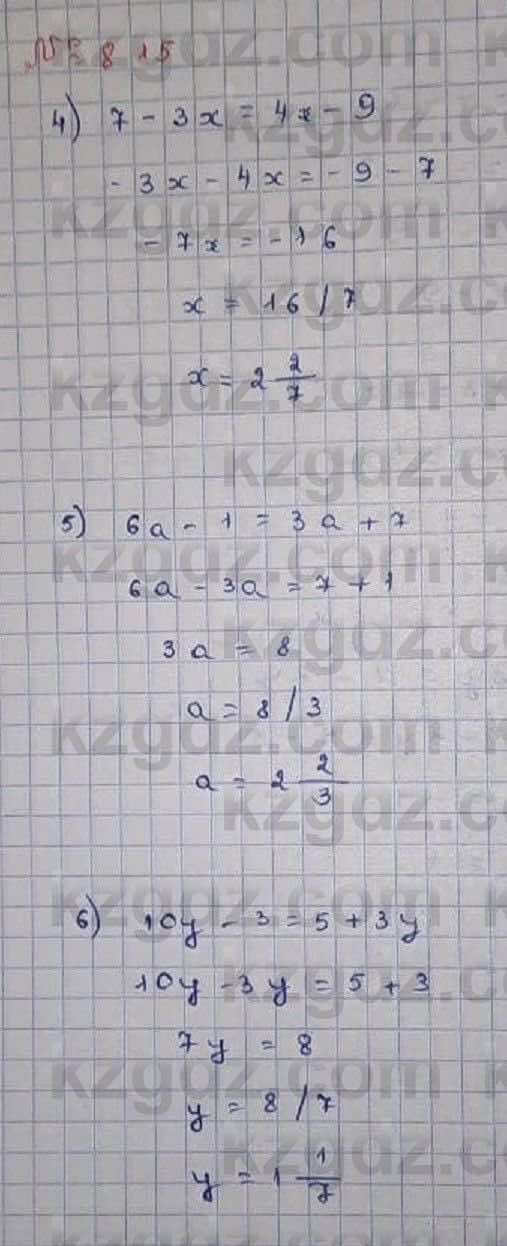 № 815
4) 7 - 3x = 4x - 9
- 3x - 4x = - 9 - 7
- 7x = - 16
x = 16 / 7
x = 2 2/7
5) 6a - 1 = 3a + 7
6a - 3a = 7 + 1
3a = 8
a = 8 / 3
a = 2 2/3
6) 10y - 3 = 5 + 3y
10y - 3y = 5 + 3
7y = 8
y = 8 / 7
y = 1 1/7
kzgdz.com